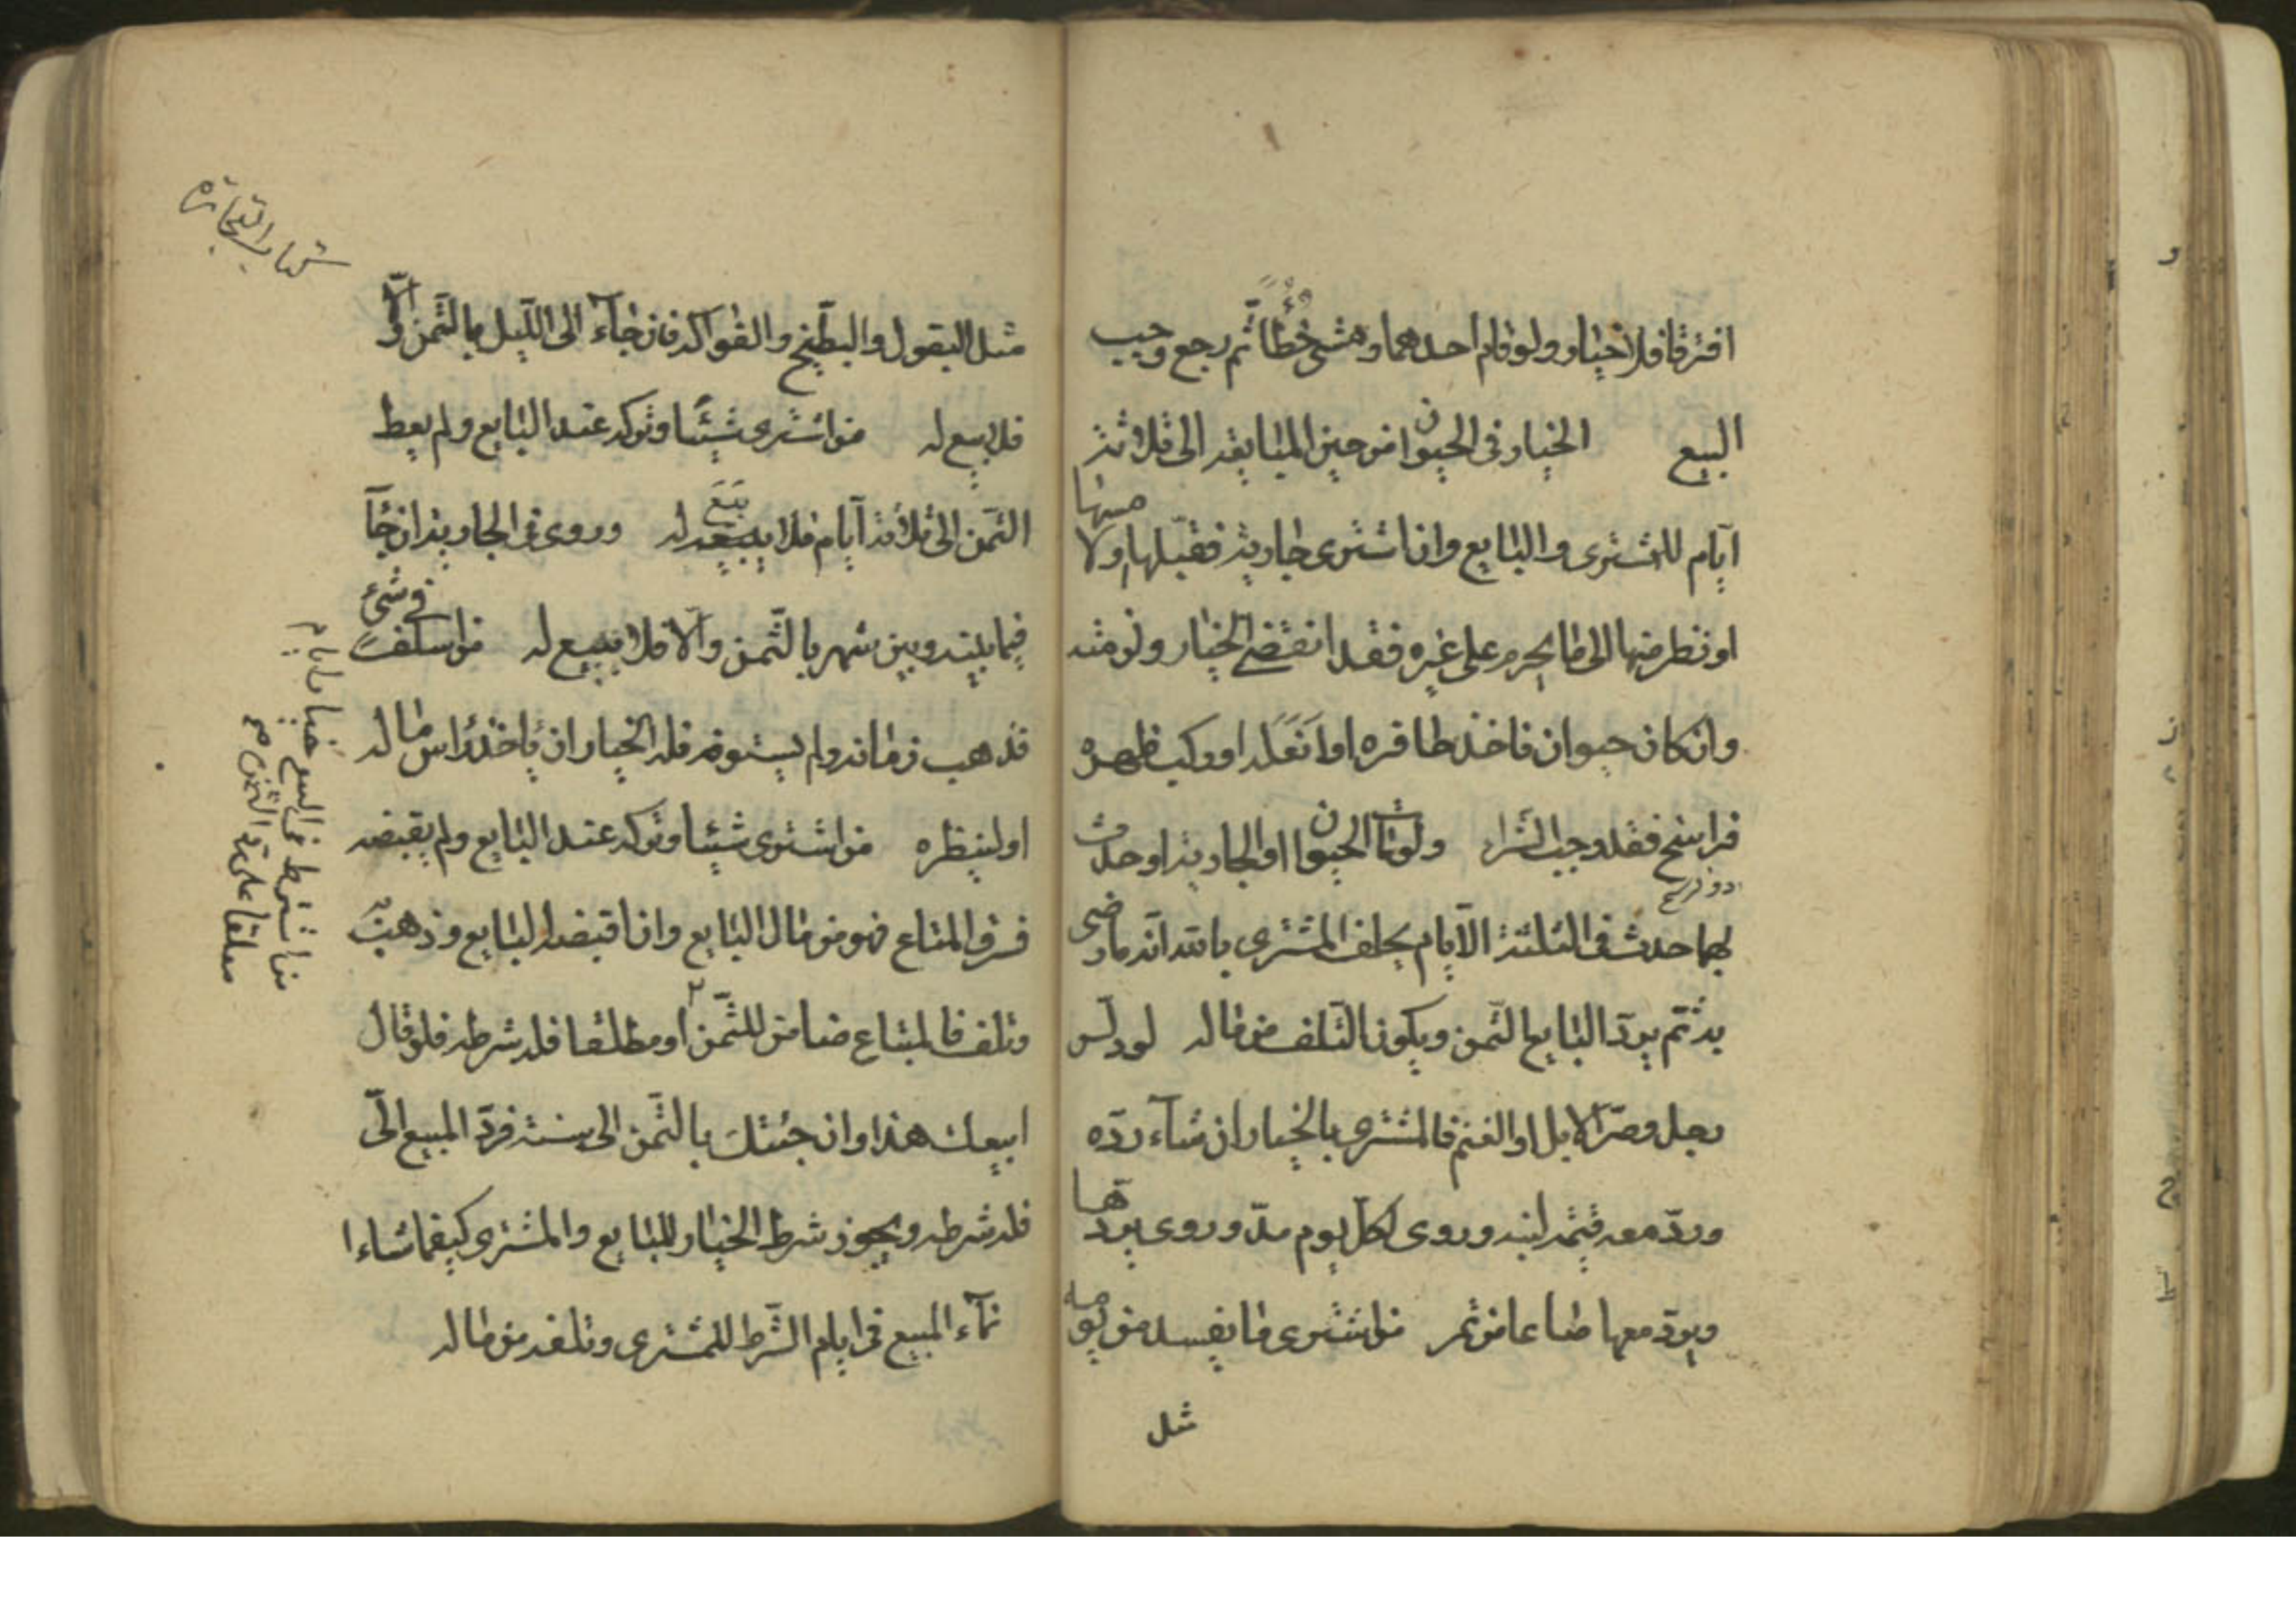 افترقا فلا خيار ولو قام احدهما ومشى خُطًا ثم رجع وجب
البيع الخيار فى الحيوان من حين المبايعة الى ثلاثة
ايام للمشترى والبايع وان اشترى جارية فقبّلها او لامسها
او نظر منها الى ما يحرم على غيره فقد انقضى الخيار ولزمته
وان كان حيوان فاخذ حافره او انعله او ركب ظهره
فراسخ فقد وجب الشراء ولو مات الحيوان او الجارية او حدث
بهما حدث فى الثلثة الايام يحلف المشترى بالله انه ما رضى
به ثم يردّ البايع الثمن ويكون التلف من ماله لو دلّس
رجل وصرّ الابل او الغنم فالمشترى بالخيار ان شآء ردّه
وردّ معه قيمة لبنه وروى لكل يوم مدّ وروى يردّها
ويردّ معها صاعا من تمر من اشترى ما يفسد من يومه
مثل
كتاب التجارة
مثل البقول والبطّيخ والفواكه فان جآء الى الليل بالثّمن والّا
فلا بيع له من اشترى شيئا وتركه عند البايع ولم يعط
الثّمن الى ثلاثة ايام فلا بيع له وروى فى الجارية ان جآء
فيما بينه وبين شهر بالثّمن والّا فلا بيع له من اسلف فى شئ
فذهب زمانه ولم يستوفه فله الخيار ان ياخذ راس ماله
او لينظره من اشترى شيئا وتركه عند البايع ولم يقبضه
فسرق المتاع فهو من مال البايع وان اقبضه البايع وذهب به
وتلف فالمبتاع ضامن للثّمن او مطلقا فله شرطه فلو قال
ابيعك هذا وان جئتك بالثّمن الى سنة فردّ المبيع الىّ
فله شرطه ويجوز شرط الخيار للبايع والمشترى كيفما شاءا
نمآء المبيع فى ايام الشّرط للمشترى وتلفه من ماله
من اشترط فى البيع خيار ايام
معلقا على ردّ الثمن صح